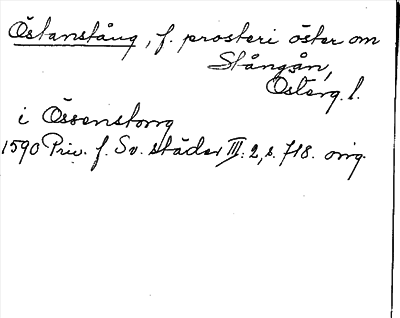 Östanstång, f. prosteri öster om
Stångån,
Österg. l.
i Össenstong
1590 Priv. f. Sv. städer III:2, s. 718. orig.